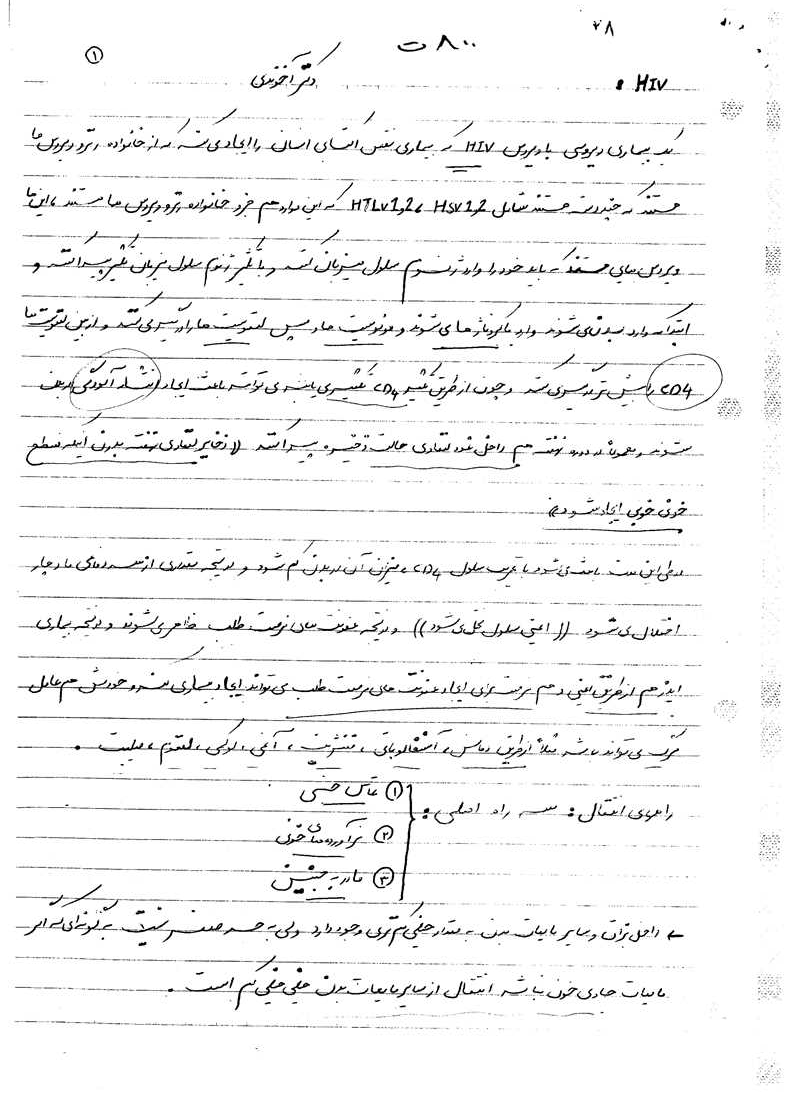 ۳۸
۸۰۰ ت
①
HIV : دکتر آخوندی
یک بیماری ویروسی با ویروس HIV که بیماری نقص اکتسابی انسان را ایجاد می کند که از خانواده رترو ویروس ها
هستند که چند دسته هستند شامل HSV 1,2 ، HTLV 1,2 که این موارد هم جزو خانواده رترو ویروس ها هستند ، این ها
ویروس هایی هستند که باید خود را وارد ژنوم سلول میزبان کنند و با تکثیر ژنوم سلول میزبان تکثیر پیدا کنند و
ابتدا که وارد بدن می شوند وارد ماکروفاژها می شوند و مونوسیت ها و سپس لنفوسیت ها را درگیر می کنند و از بین لنفوسیت ها
CD4 را بیش تر درگیر می کند و چون از طریق تکثیر CD4 تکثیر می یابند می توانند باعث ایجاد انتشار آلودگی در بدن
شوند و معمولا در دوره نهفته هم داخل غدد لنفاوی حالت ذخیره پیدا کنند ((ذخایر لنفاوی نهفته بدون اینکه سطح
خونی خوبی ایجاد شود))
در طی این مدت باعث می شود با تخریب سلول CD4 ، میزان آن در بدن کم شود و در نتیجه مقداری از سیستم دفاعی ما دچار
اختلال می شود ((ایمنی سلولی مختل می شود)) و در نتیجه عفونت های فرصت طلب ظاهر می شوند و در نتیجه بیماری
ایدز هم از طریق ایمنی و هم فرصت برای ایجاد عفونت های فرصت طلب می تواند ایجاد بیماری کند و خودش هم عامل
مرگ می تواند باشد مثلاً از طریق دمانس ، آنسفالوپاتی ، نفریت ، آنمی ، لوکمی ، لنفوم ،
راههای انتقال : سه راه اصلی :
① تماس جنسی
② فرآورده های خونی
③ مادر به جنین
← داخل بزاق و سایر مایعات بدن به مقدار خیلی کم تری وجود دارد ولی به حد صفر نیست به گونه ای که اگر
مایعات حاوی خون نباشد انتقال از سایر مایعات بدن خیلی خیلی کم است .